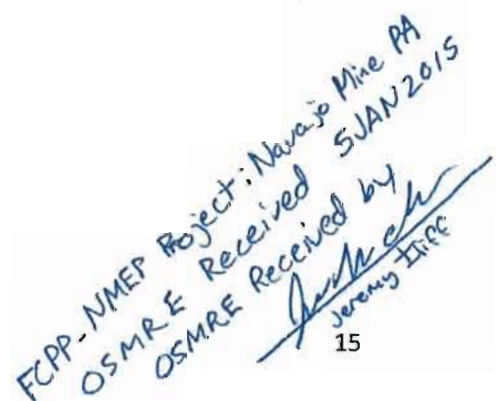 FCPP-NMEP Project: Navajo Mine PA
OSMRE Received 5JAN2015
OSMRE Received by
Jeremy Iliff
15